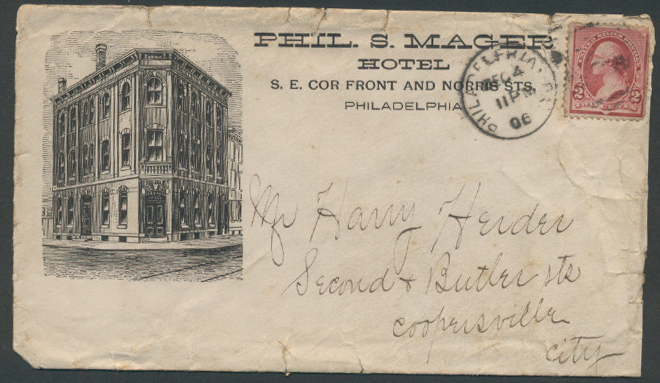 PHIL. S. MAGER
HOTEL
S. E. COR FRONT AND NORRIS STS.
PHILADELPHIA
PHILADELPHIA
DEC 4
11 PM
06
2 2
Mr Harry Heider
Second & Butler sts
Coopersville
City